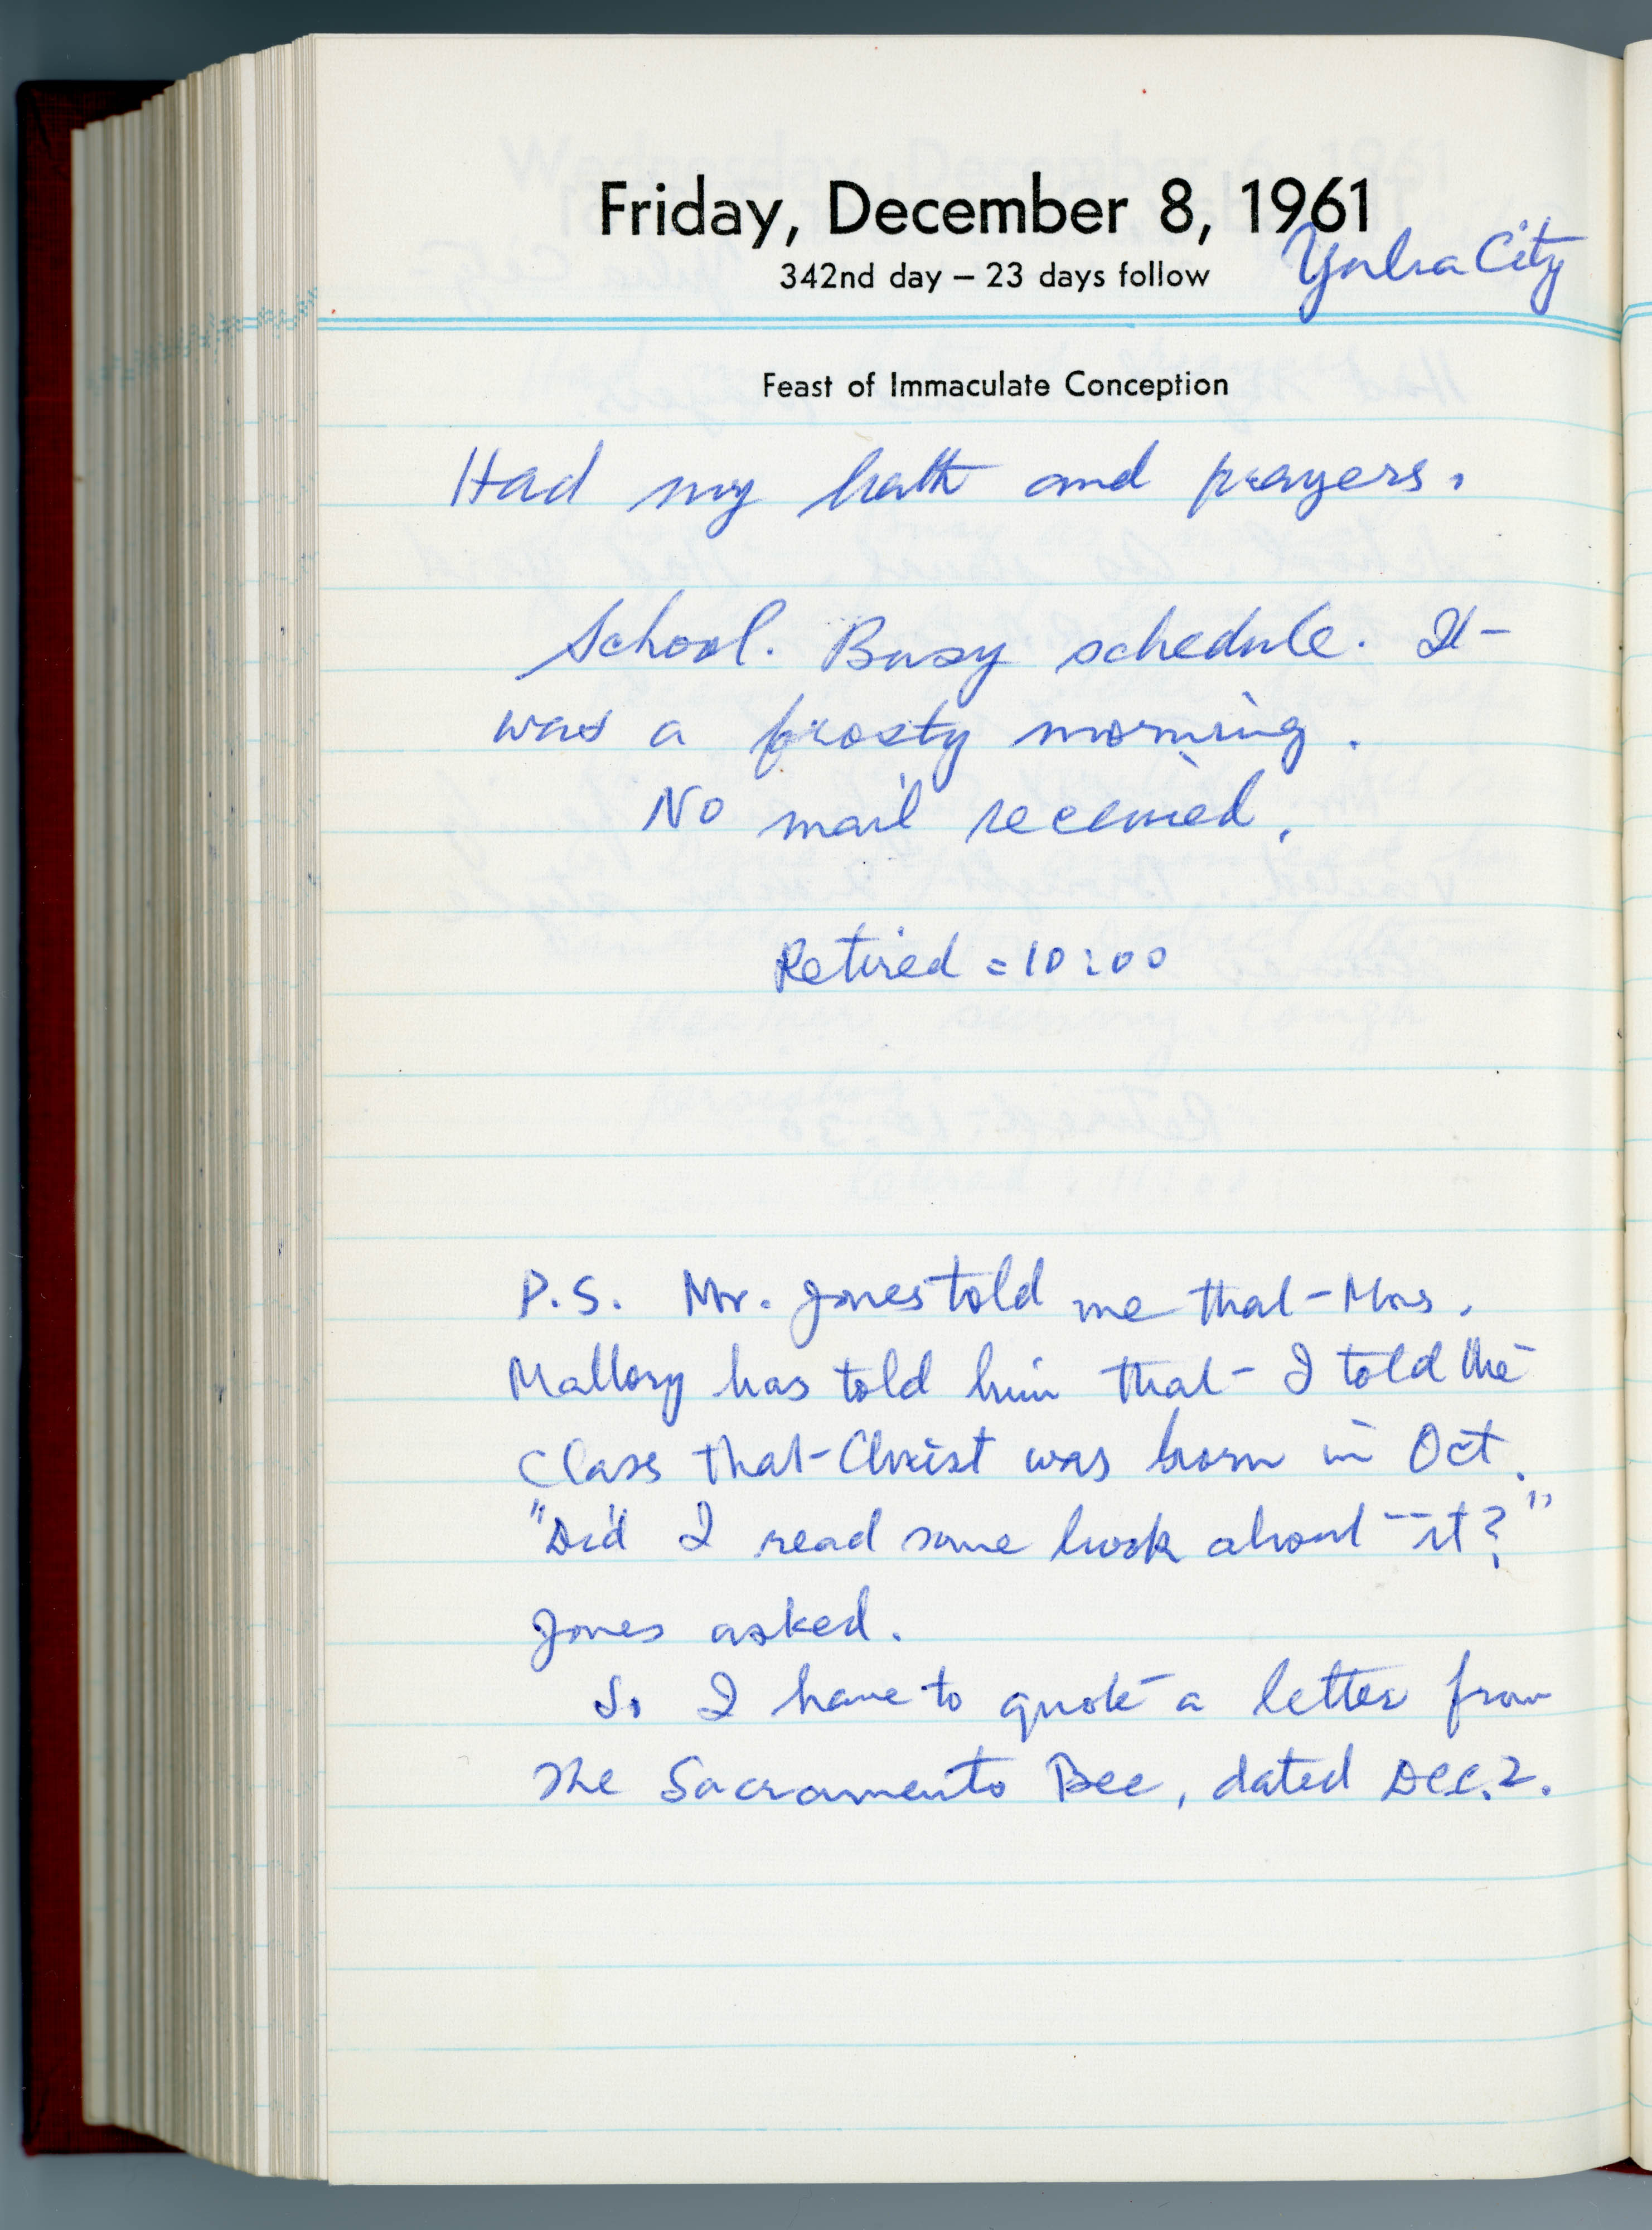 Friday, December 8, 1961
342nd day – 23 days follow
Yuba City
Feast of Immaculate Conception
Had my bath and prayers.
School. Busy schedule. It
was a frosty morning.
No mail received.
Retired = 10:00
P.S. Mr. Jones told me that Mrs.
Mallory has told him that I told the
Class that Christ was born in Oct.
"Did I read some book about it?"
Jones asked.
So I have to quote a letter from
The Sacramento Bee, dated Dec. 2.